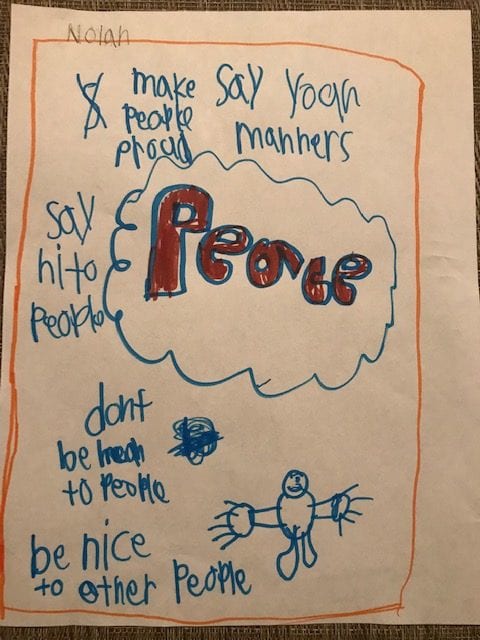 Nolan
make
people
proud
say yoan
manners
say
hi to
people
Peace
dont
be mean
to people
be nice
to other people